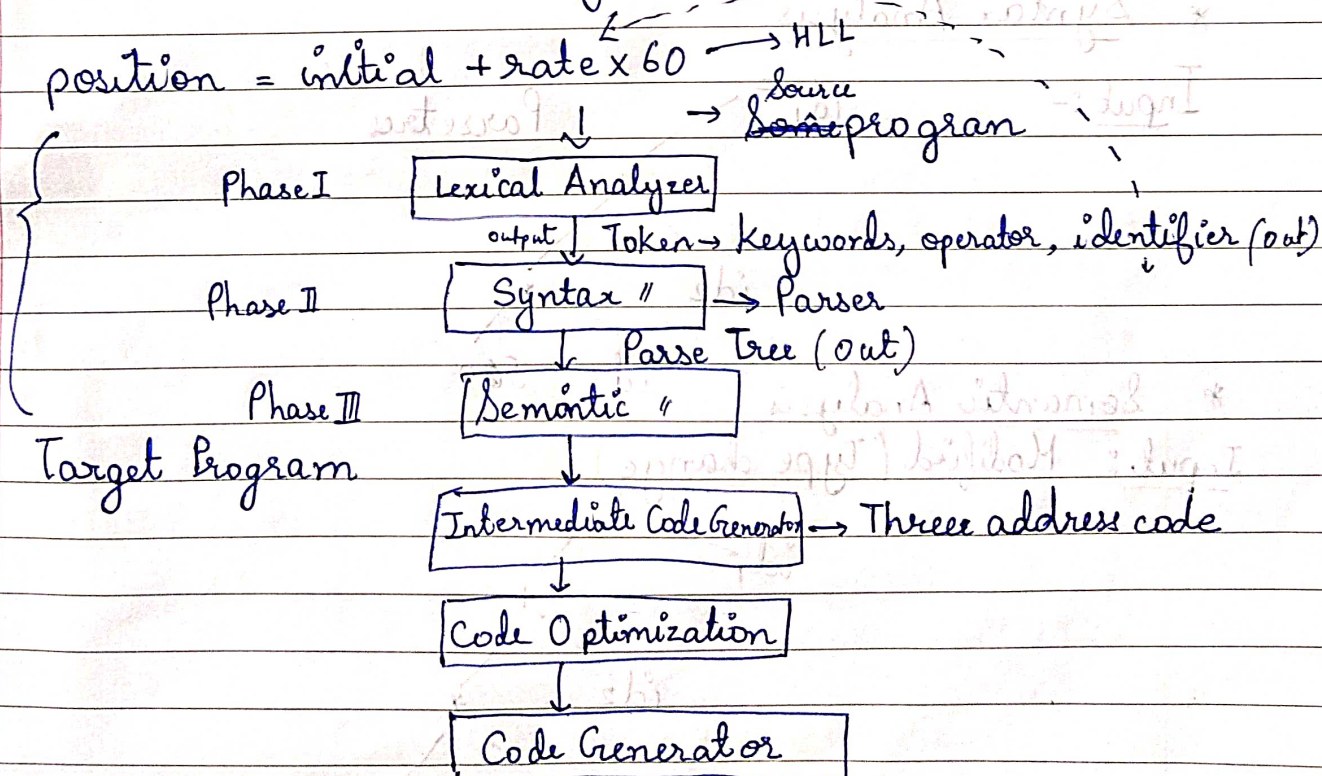 position = initial + rate x 60 → HLL
→ Source Some program
Phase I Lexical Analyzer
output Token → Keywords, operator, identifier (out)
Phase II Syntax " → Parser
Parse Tree (out)
Phase III Semantic "
Target Program
Intermediate Code Generator → Threee address code
Code Optimization
Code Generator